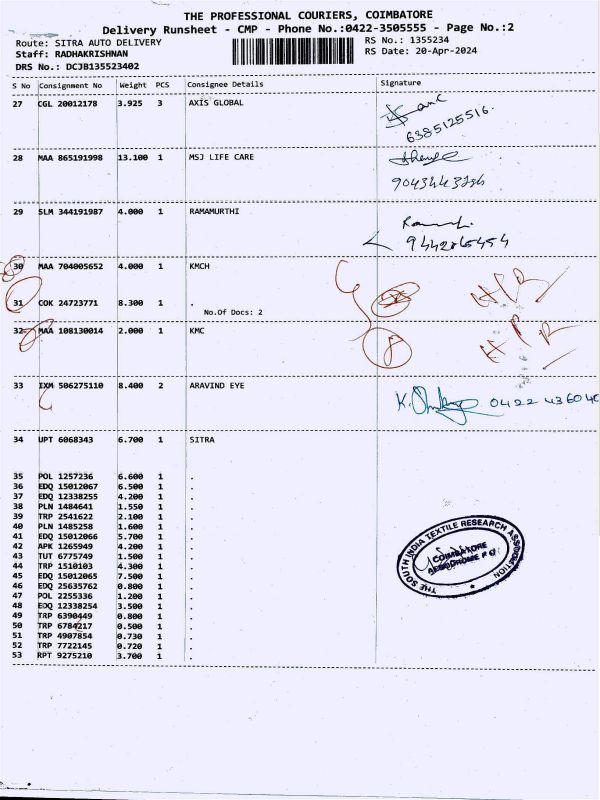 THE PROFESSIONAL COURIERS, COIMBATORE
Delivery Runsheet - CMP - Phone No.:0422-3505555 - Page No.:2
Route: SITRA AUTO DELIVERY
RS No.: 1355234
Staff: RADHAKRISHNAN
RS Date: 20-Apr-2024
DRS No.: DCJB135523402
S No Consignment No Weight PCS Consignee Details Signature
27 CGL 20012178 3.925 3 AXIS GLOBAL
6385125516.
28 MAA 865191998 13.100 1 MSJ LIFE CARE
29 SLM 344191987 4.000 1 RAMAMURTHI
30 MAA 704005652 4.000 1 KMCH
31 COK 24723771 8.300 1 .
No.Of Docs: 2
32 MAA 108130014 2.000 1 KMC
33 IXM 506275110 8.400 2 ARAVIND EYE
0422 436040
34 UPT 6068343 6.700 1 SITRA
35 POL 1257236 6.600 1 .
36 EDQ 15012067 6.500 1 .
37 EDQ 12338255 4.200 1 .
38 PLN 1484641 1.550 1 .
39 TRP 2541622 2.100 1 .
40 PLN 1485258 1.600 1 .
41 EDQ 15012066 5.700 1 .
42 APK 1265949 4.200 1 .
43 TUT 6775749 1.500 1 .
44 TRP 1510103 4.300 1 .
45 EDQ 15012065 7.500 1 .
46 EDQ 25635762 0.800 1 .
47 POL 2255336 1.200 1 .
48 EDQ 12338254 3.500 1 .
49 TRP 6390449 0.800 1 .
50 TRP 6784217 0.500 1 .
51 TRP 4907854 0.730 1 .
52 TRP 7722145 0.720 1 .
53 RPT 9275210 3.700 1 .
THE SOUTH INDIA TEXTILE RESEARCH ASSOCIATION
COIMBATORE
AERODROME P O